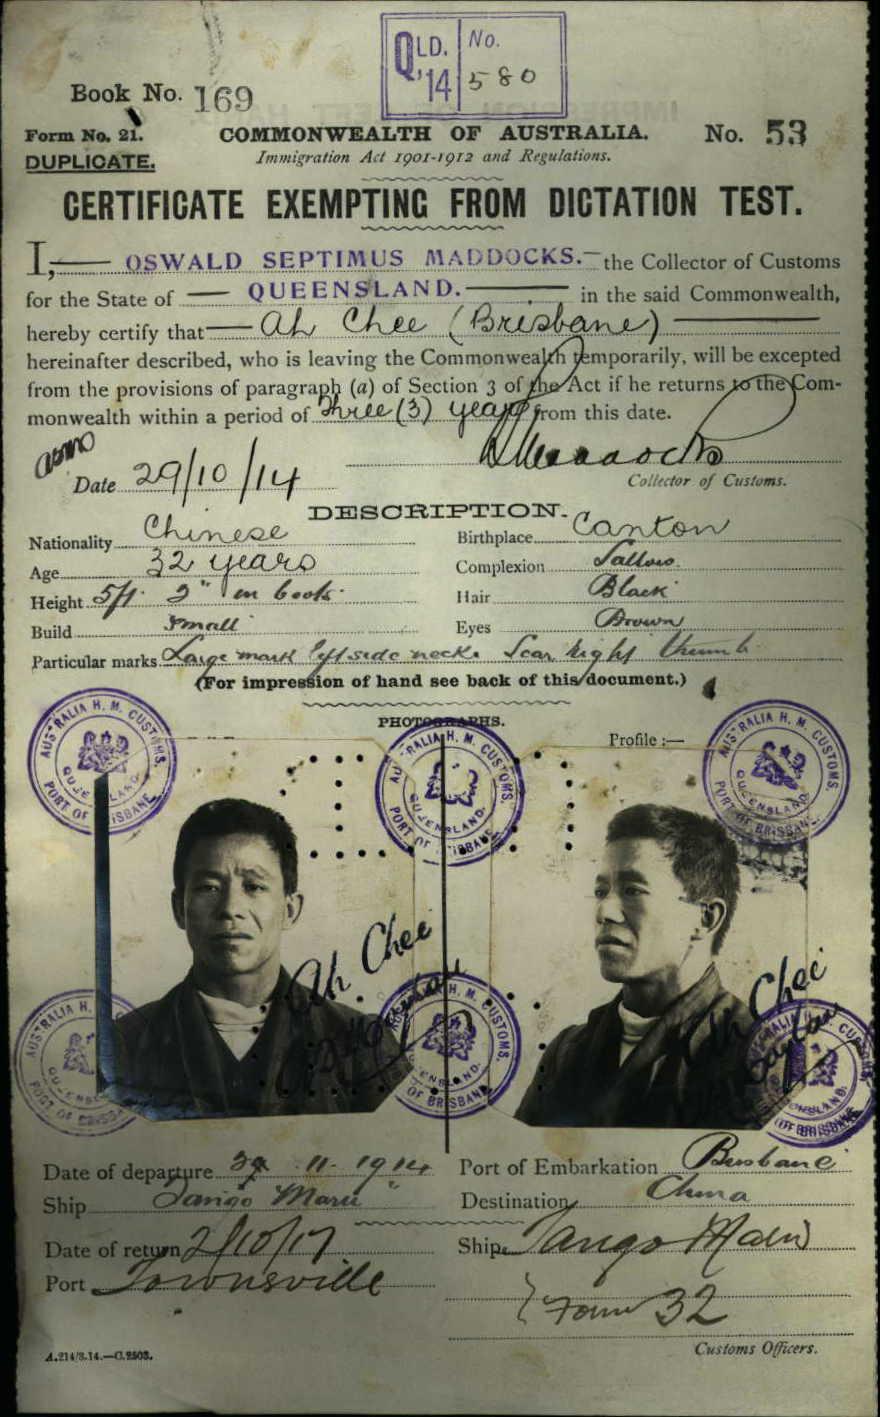 QLD. '14 No. 580
Book No. 169
Form No. 21.
COMMONWEALTH OF AUSTRALIA. No. 53
DUPLICATE.
Immigration Act 1901-1912 and Regulations.
CERTIFICATE EXEMPTING FROM DICTATION TEST.
I, OSWALD SEPTIMUS MADDOCKS. the Collector of Customs
for the State of QUEENSLAND. in the said Commonwealth,
hereby certify that Ah Chee (Brisbane)
hereinafter described, who is leaving the Commonwealth temporarily, will be excepted
from the provisions of paragraph (a) of Section 3 of the Act if he returns to the Com-
monwealth within a period of Three (3) years from this date.
Date 29/10/14
Collector of Customs.
DESCRIPTION.
Nationality Chinese Birthplace Canton
Age 32 years Complexion Sallow.
Height 5ft. 2" in boots. Hair Black
Build Small Eyes Brown
Particular marks Large mark left side neck. Scar right thumb
(For impression of hand see back of this document.)
PHOTOGRAPHS.
Profile :—
AUSTRALIA H. M. CUSTOMS. QUEENSLAND. PORT OF BRISBANE
AUSTRALIA H. M. CUSTOMS. QUEENSLAND. PORT OF BRISBANE
AUSTRALIA H. M. CUSTOMS. QUEENSLAND. PORT OF BRISBANE
Ah Chee
Ah Chee
AUSTRALIA H. M. CUSTOMS. QUEENSLAND. PORT OF BRISBANE
AUSTRALIA H. M. CUSTOMS. QUEENSLAND. PORT OF BRISBANE
AUSTRALIA H. M. CUSTOMS. QUEENSLAND. PORT OF BRISBANE
Date of departure 11. 1914 Port of Embarkation Brisbane
Ship Tango Maru Destination China
Date of return 2/10/17 Ship Tango Maru
Port Townsville
Form 32
Customs Officers.
A.214/8.14.—C.2503.